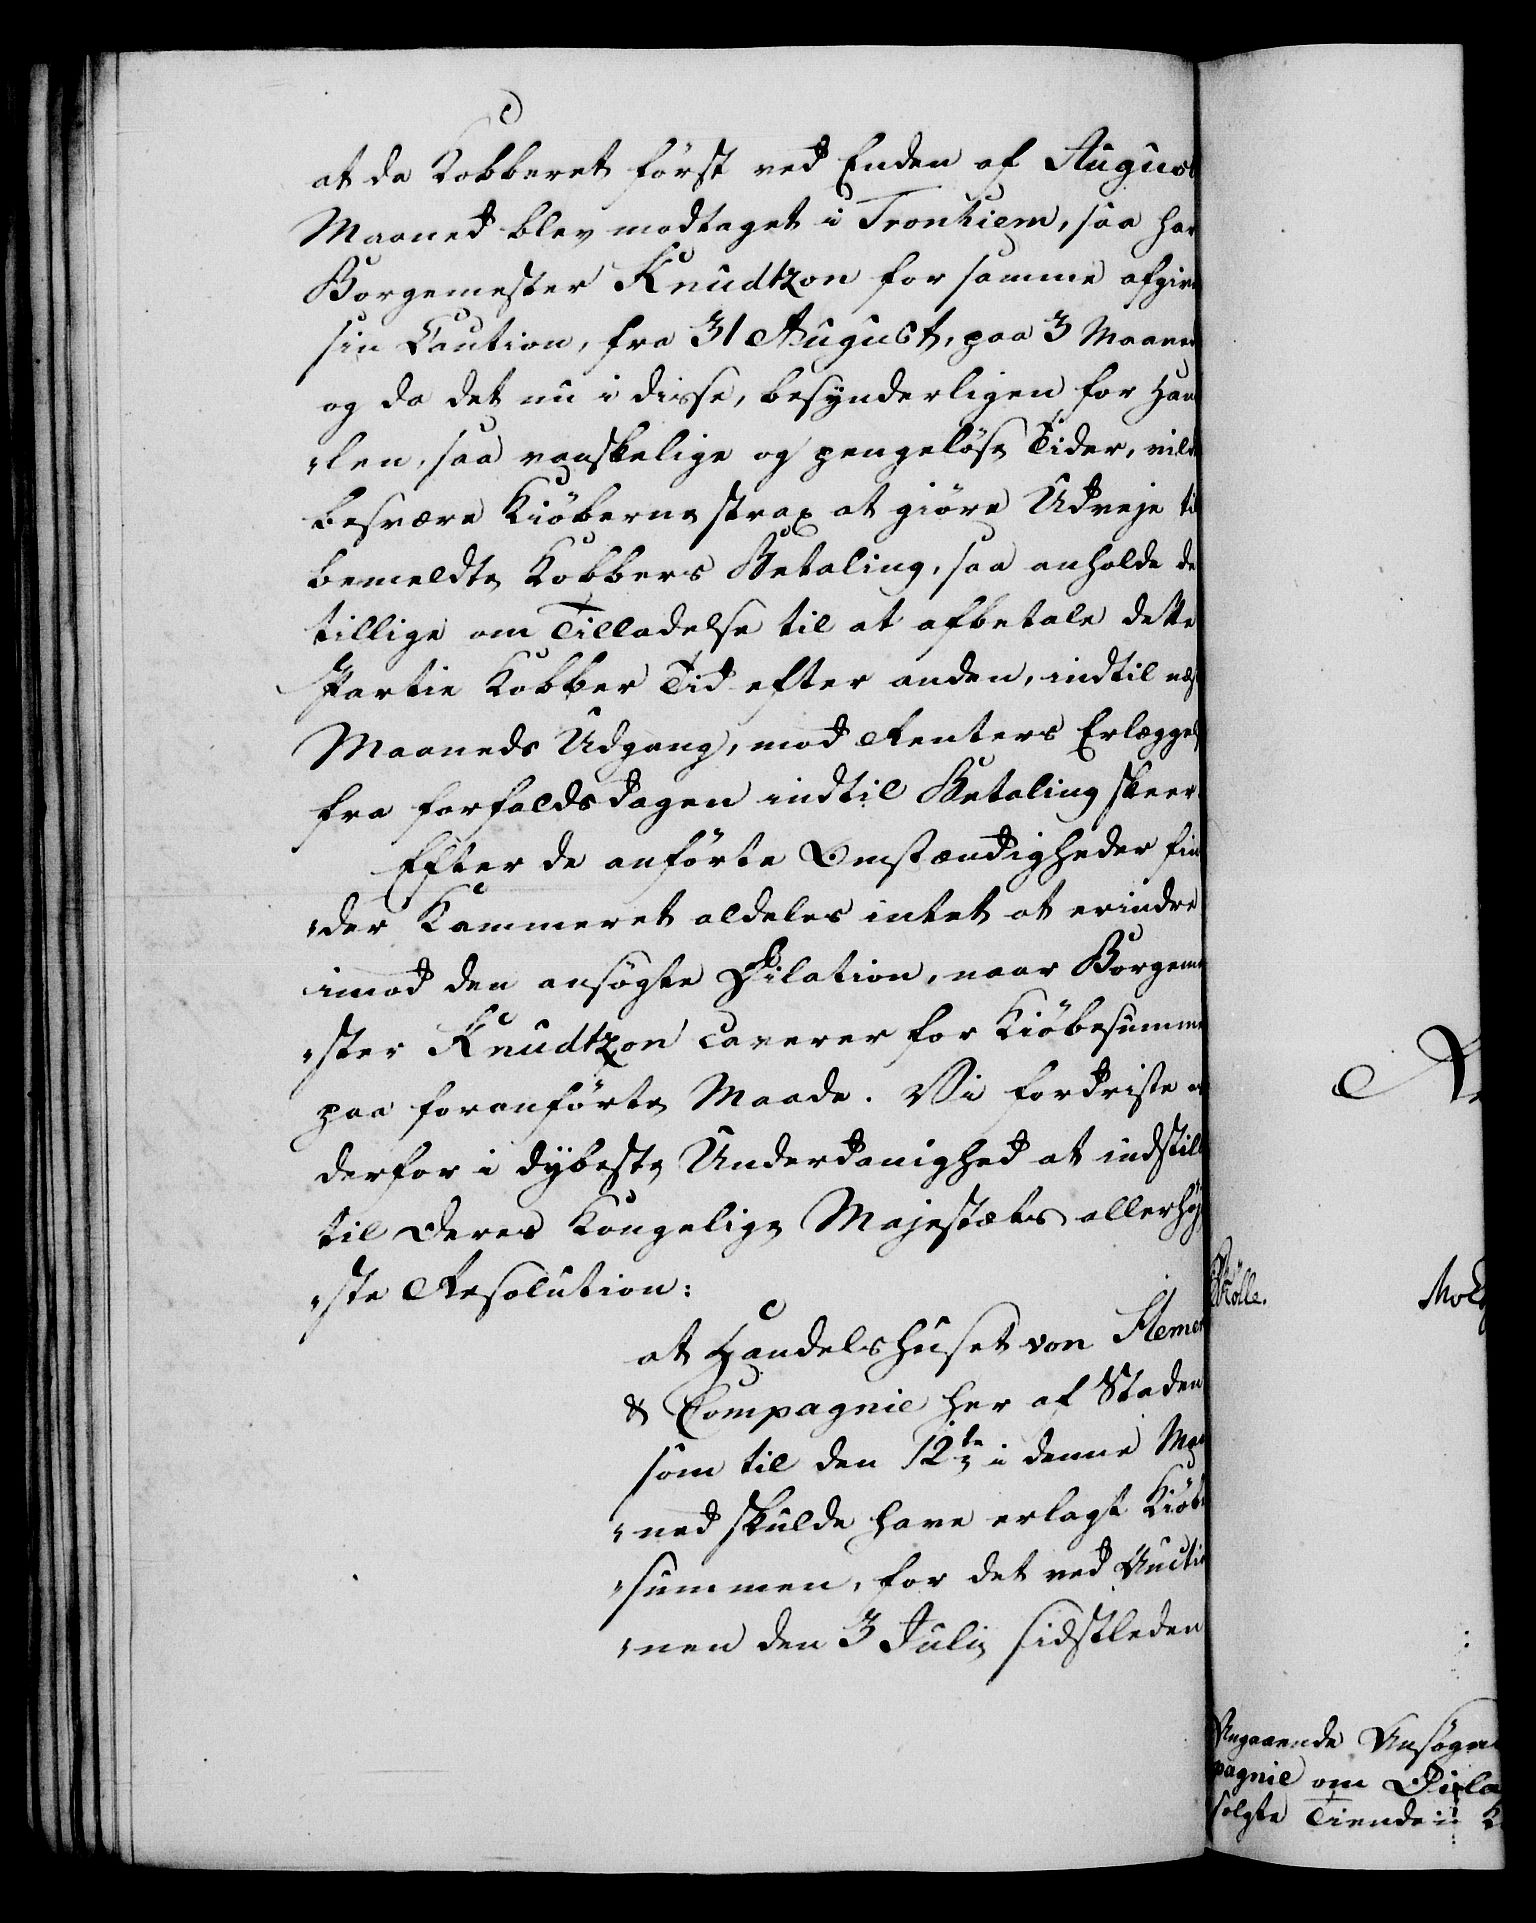 at da Kobberet först ved Enden af August
Maaned blev modtaget i Tronhiem, saa har
Borgemester Knudtzon for samme afgive
sin Caution, fra 31 August, paa 3 Maane
og da det nu i disse, besynderligen for Han
„len, saa vanskelige og pengelöse Tider, vil
besvære Kiöberne strax at giöre Udveje til
bemeldte Kobbers Betaling, saa anholde de
tillige om Tilladelse til at afbetale dette
Partie Kobber Tid efter anden, indtil næs
Maaneds Udgang, mod Renters Erlæggels
fra forfaldsdagen indtil Betaling skeer.
Efter de anförte Omstændigheder fin
„der Kammeret aldeles intet at erindre
imod den ansögte Dilation, naar Borgeme
„ster Knudtzon caverer for Kiöbesumme
paa foranförte Maade. Vi fordriste
derfor i dybeste Underdanighed at indstill
til Deres Kongelige Majestæts allerhöj
„ste Resolution:
at Handelshuset von Hemert
& Compagnie her af Staden
som til den 12te i denne Maa
„ned skulde have erlagt Kiöbe
„summen, for det ved Auctio
„nen den 3 Julii sidstleden
Mölle.
Angaaende Ansögn
pagnie om Dila
solgte Tiende